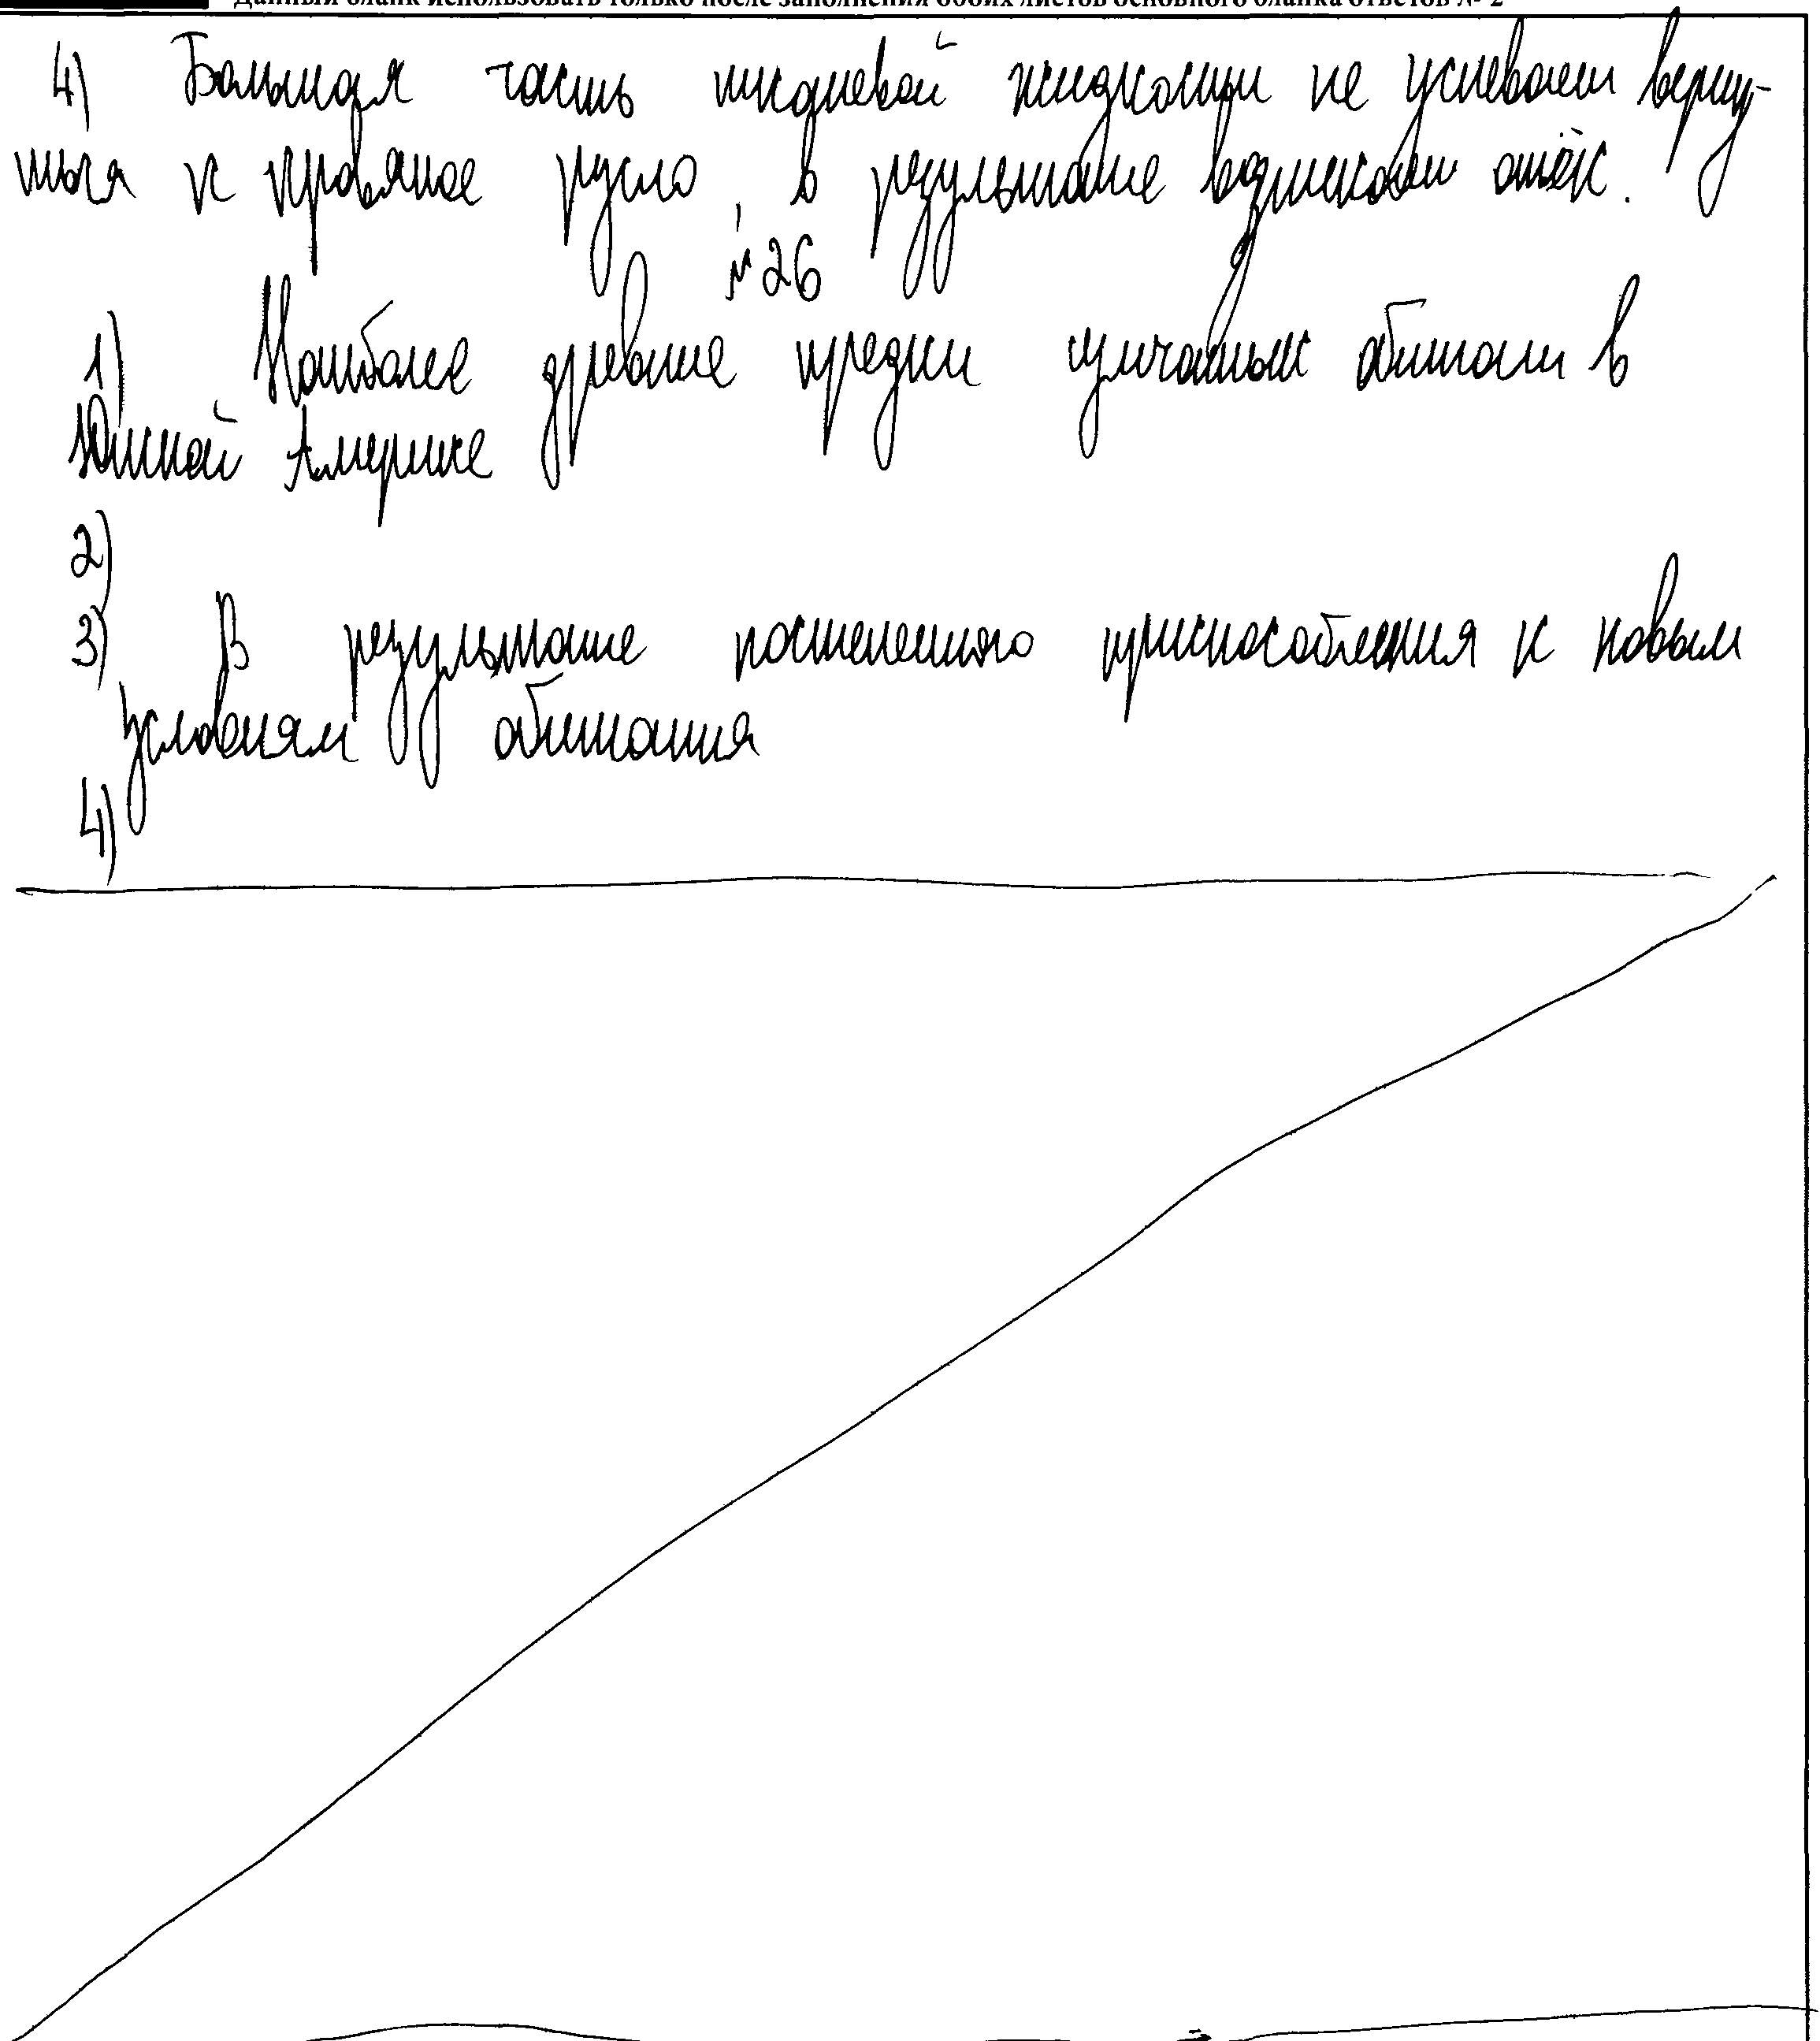 Данный бланк использовать только после заполнения обоих листов основного бланка ответов № 2
4) Большая часть тканевой жидкости не успевает верну-
ться к кровяное русло, в результате возникает отёк.
№26
1) Наиболее древние предки сумчатых обитали в
Южной Америке
2)
3) В результате постепенного приспособления к новым
условиям обитания
4)